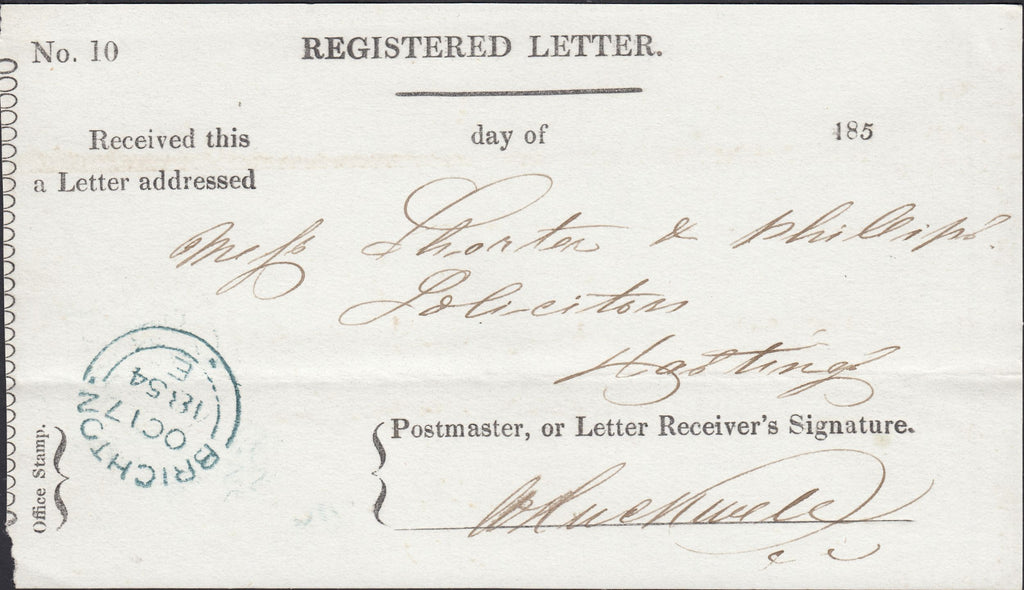 No. 10 REGISTERED LETTER.
Received this day of 185
a Letter addressed
Mess Shorter & Phillips
Solicitors
Hastings
BRIGHTON
OC 17
1854
E
Office Stamp.
Postmaster, or Letter Receiver's Signature.